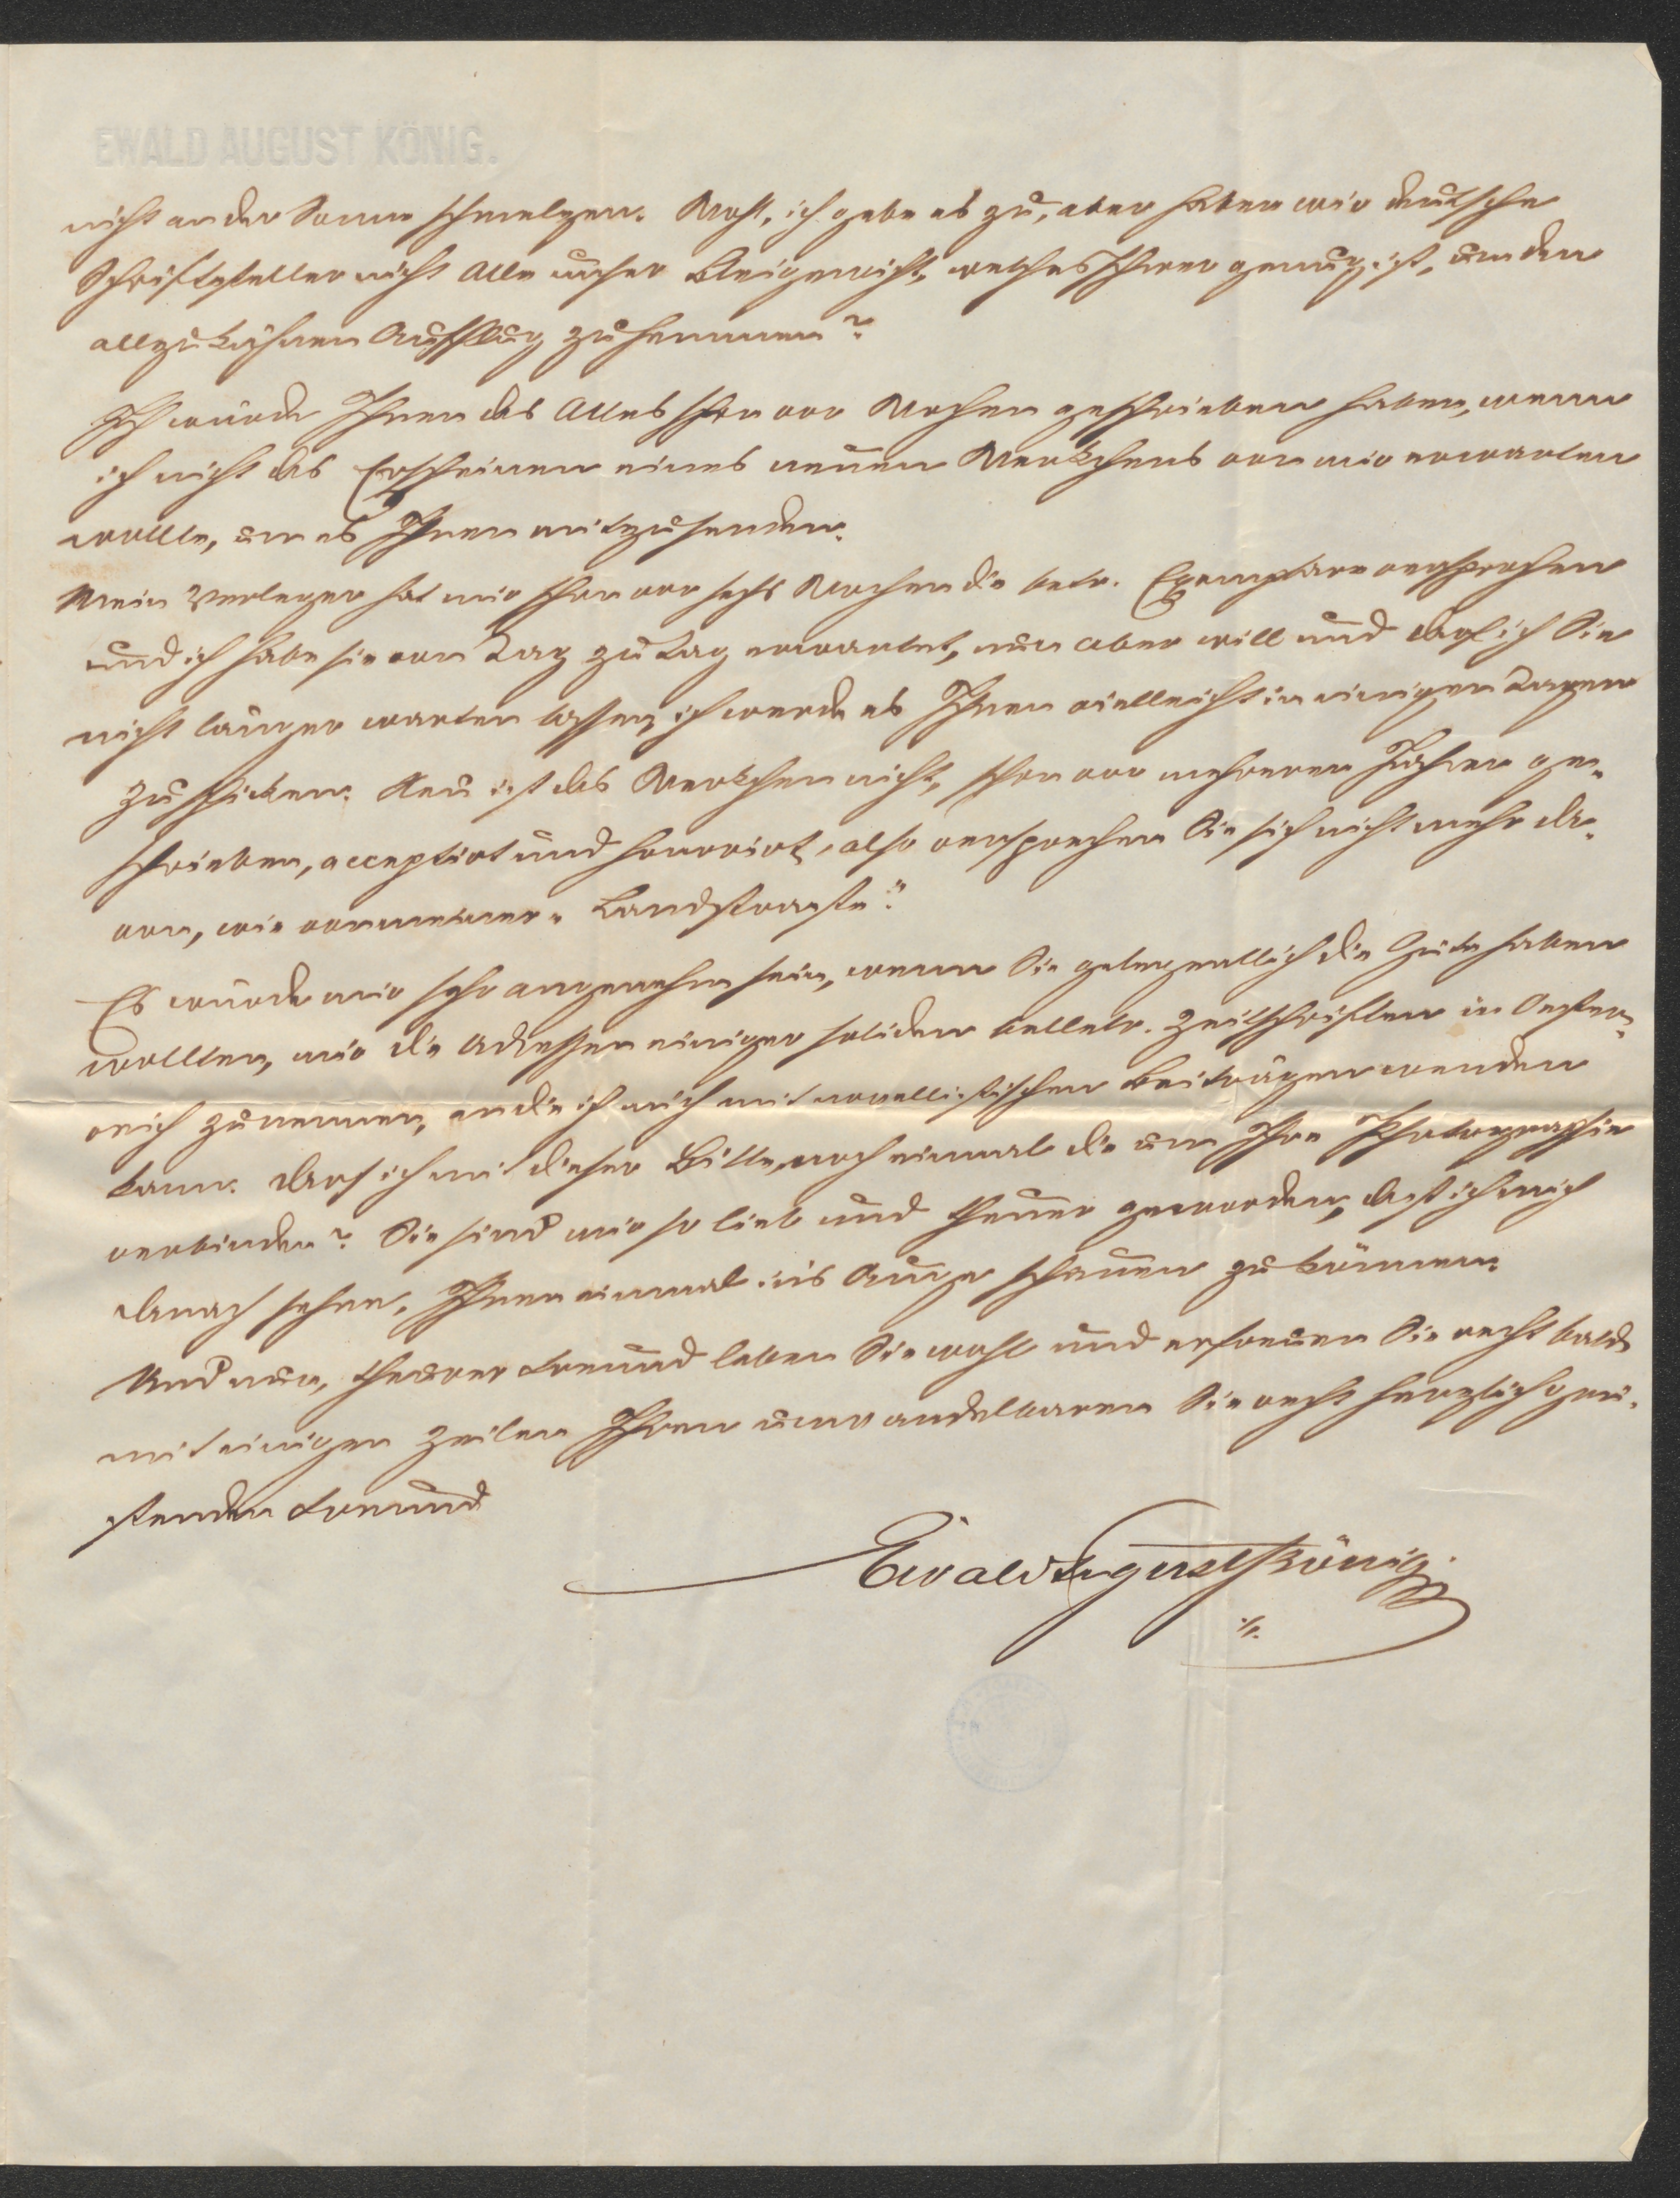 EWALD AUGUST KÖNIG.
nicht an der Sonne schmelzen. Wohl, ich gebe es zu, aber haben wir deutsche
Schriftsteller nicht Alle unser Bleigewicht, welches schwer genug ist, um den
allzu kühnen Aufflug zu hemmen?
Ich würde Ihnen das Alles schon vor Wochen geschrieben haben, wenn
ich nicht das Erscheinen eines neuen Werkchens von mir erwarten
wollte, um es Ihnen mitzusenden.
Mein Verleger hat mir schon vor sechs Wochen die betr. Exemplare versprochen
und ich habe sie von Tag zu Tag erwartet, nun aber will und darf ich Sie
nicht länger warten lassen, ich werde es Ihnen vielleicht in einigen Tagen
zuschicken. Neu ist das Werkchen nicht, schon vor mehreren Jahren ge-
schrieben, acceptirt und honorirt, also versprechen Sie sich nicht mehr da-
von, wie von meiner „Landstraße".
Es würde mir sehr angenehm sein, wenn Sie gelegentlich die Güte haben
wollten, mir die Adressen einiger soliden belletr. Zeitschriften in Oester-
reich zu nennen, an die ich mich mit novellistischen Beiträgen wenden
kann. Darf ich mit dieser Bitte noch einmal die um Ihre Photographie
verbinden? Sie sind mir so lieb und theuer geworden, daß ich mich
danach sehne, Ihnen einmal in's Auge schauen zu können.
Und nun, theurer Freund leben Sie wohl und erfreuen Sie recht bald
mit einigen Zeilen Ihren unwandelbaren Sie recht herzlich grü-
ßenden Freund
Ewald August König.